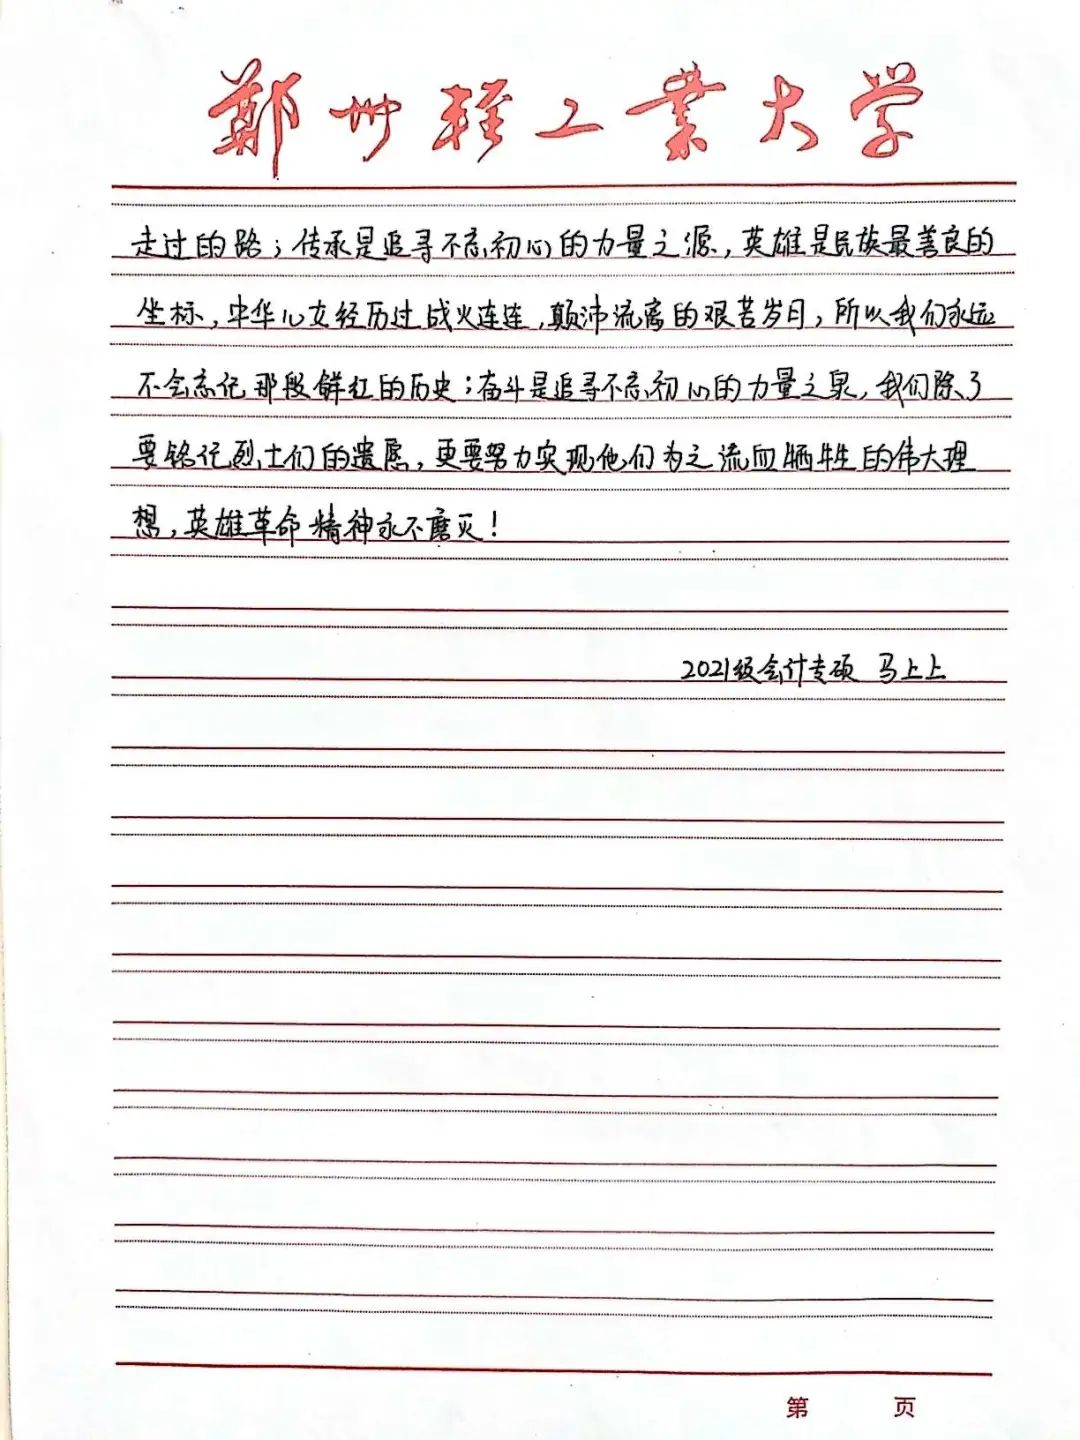 鄭州轻工業大学
走过的路；传承是追寻不忘初心的力量之源，英雄是民族最善良的
坐标，中华儿女经历过战火连连，颠沛流离的艰苦岁月，所以我们永远
不会忘记那段鲜红的历史；奋斗是追寻不忘初心的力量之泉，我们除了
要铭记烈士们的遗愿，更要努力实现他们为之流血牺牲的伟大理
想，英雄革命精神永不磨灭！
2021级会计专硕 马上上
第 页